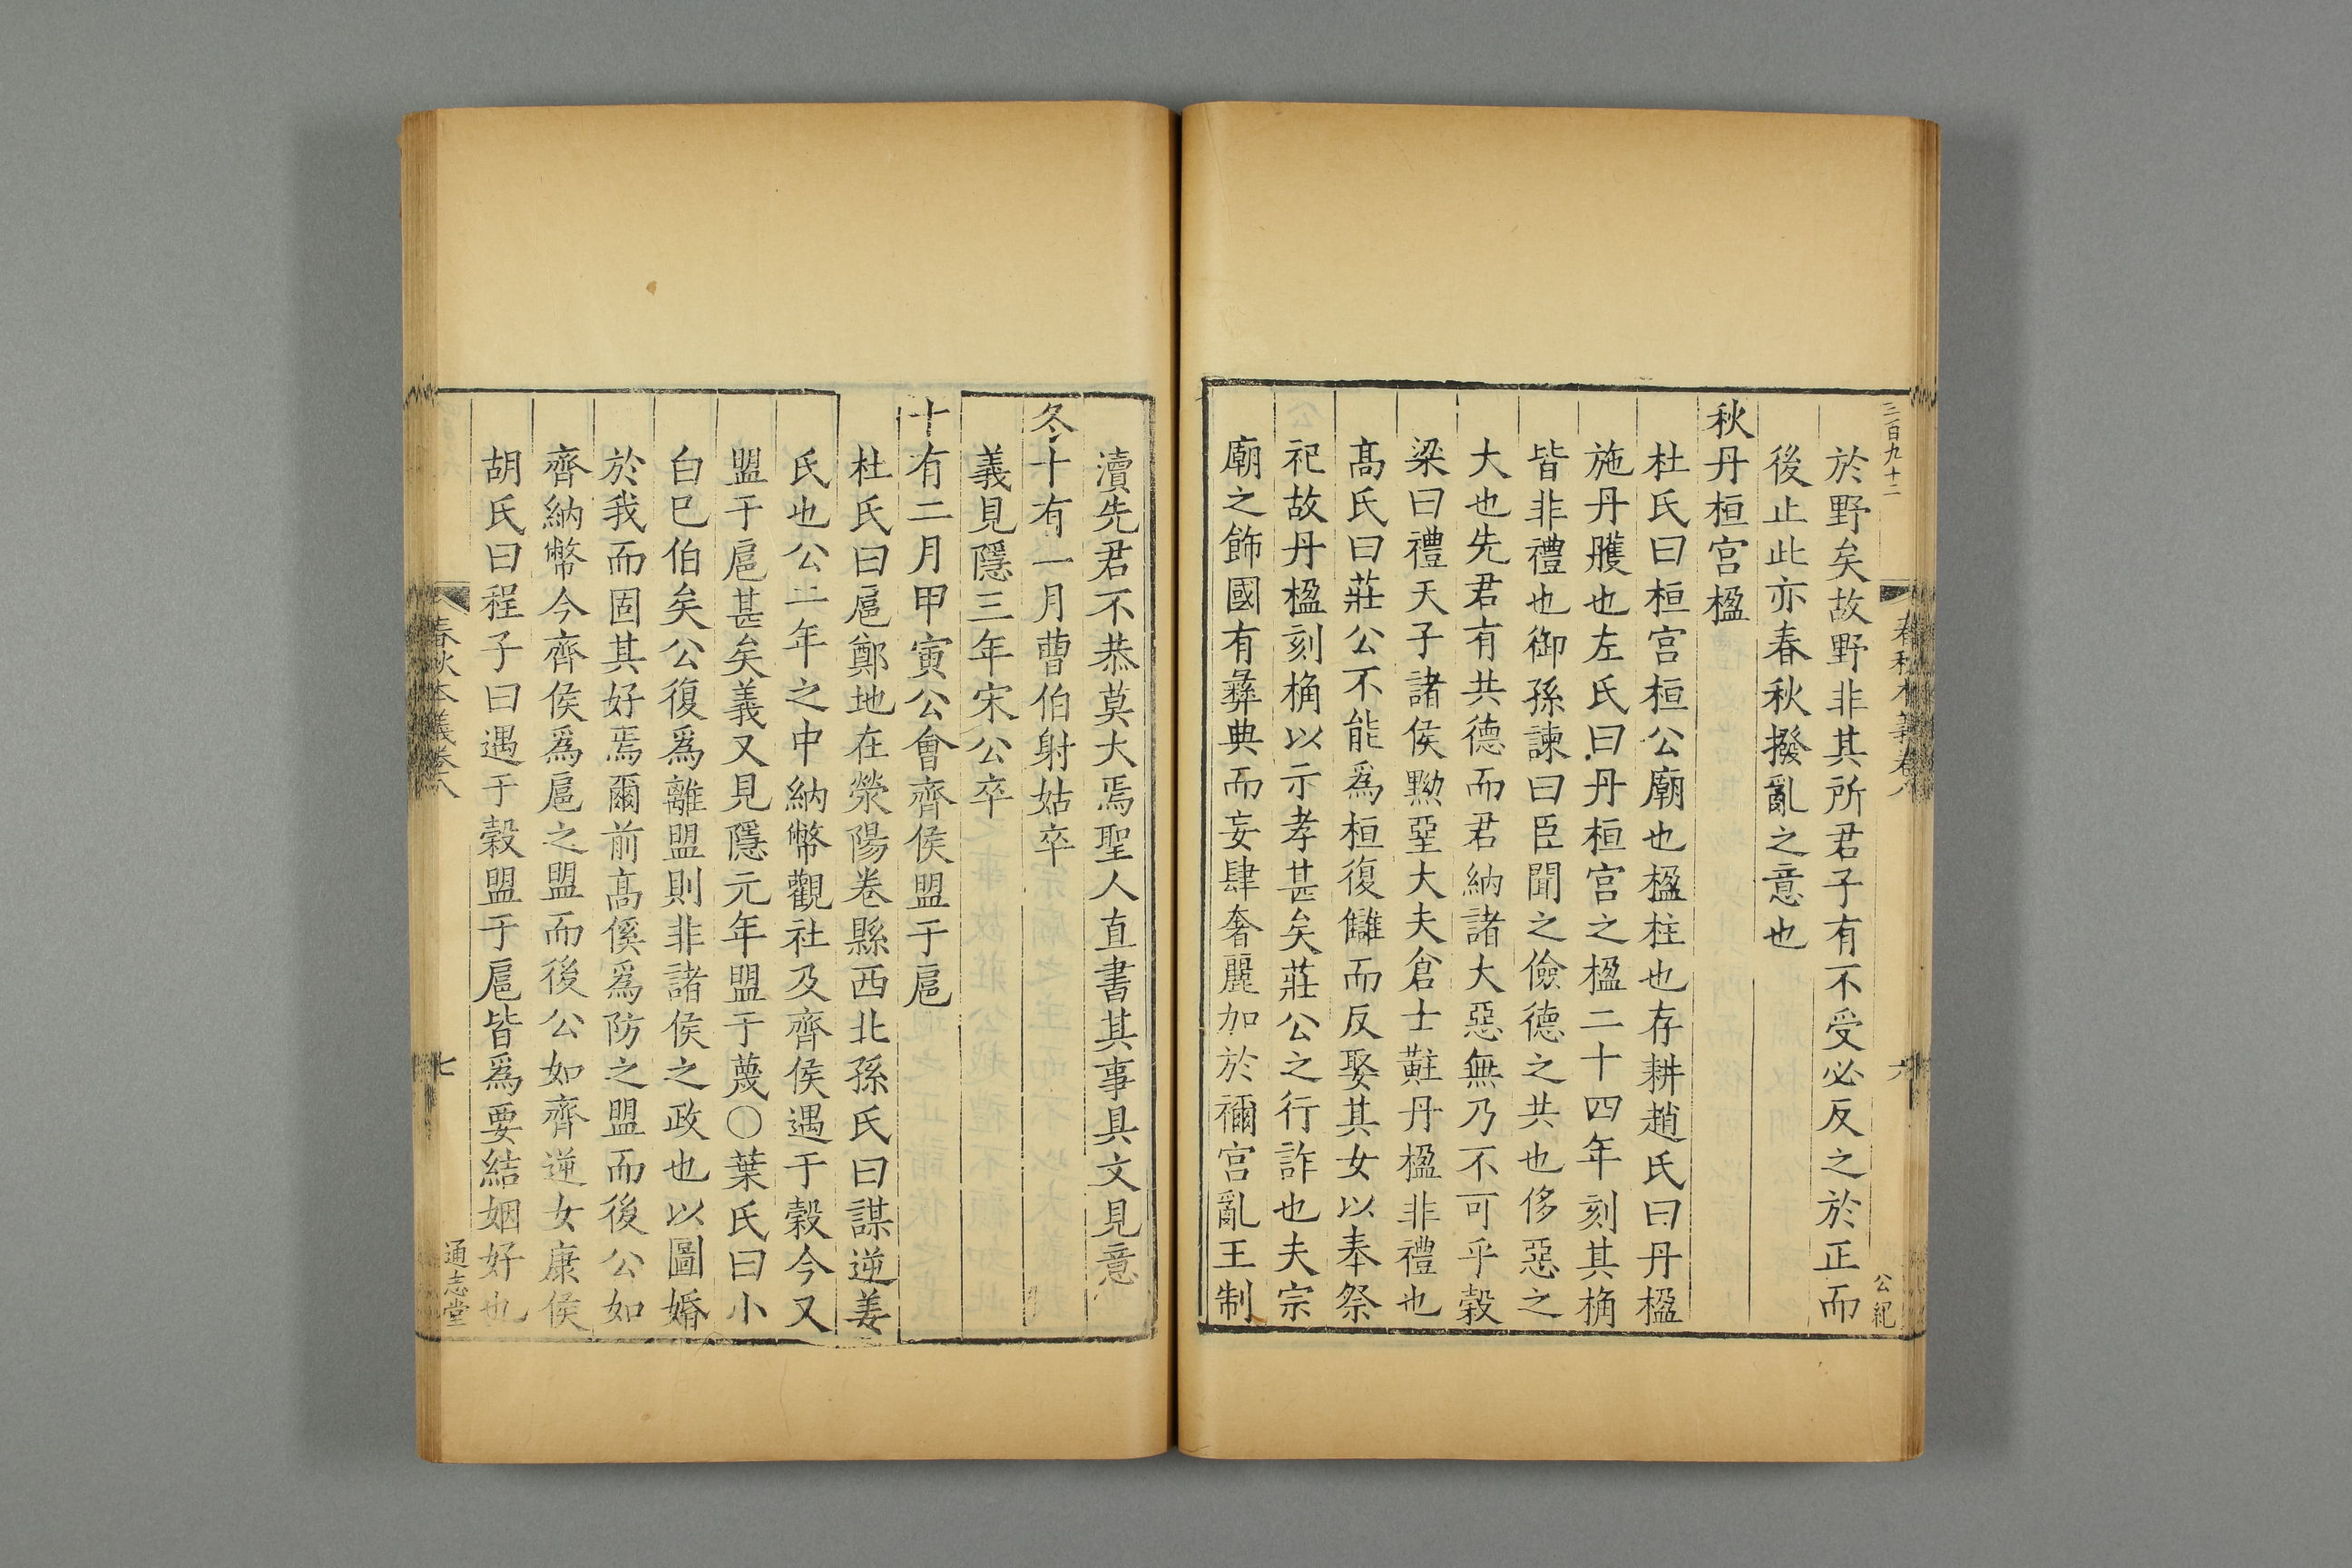 三百九十二
春秋本義卷八
六
公紀
於野矣故野非其所君子有不受必反之於正而
後止此亦春秋撥亂之意也
秋丹桓宫楹
杜氏曰桓宫桓公廟也楹柱也存耕趙氏曰丹楹
施丹雘也左氏曰丹桓宫之楹二十四年刻其桷
皆非禮也御孫諫曰臣聞之儉德之共也侈惡之
大也先君有共德而君納諸大惡無乃不可乎榖
梁曰禮天子諸侯黝堊大夫倉士黈丹楹非禮也
髙氏曰莊公不能爲桓復讎而反娶其女以奉祭
祀故丹楹刻桷以示孝甚矣莊公之行詐也夫宗
廟之飾國有彝典而妄肆奢麗加於禰宫亂王制
瀆先君不恭莫大焉聖人直書其事具文見意
冬十有一月曹伯射姑卒
義見隱三年宋公卒
十有二月甲寅公會齊侯盟于扈
杜氏曰扈鄭地在滎陽卷縣西北孫氏曰謀逆姜
氏也公二年之中納幣觀社及齊侯遇于榖今又
盟于扈甚矣義又見隱元年盟于蔑○葉氏曰小
白已伯矣公復爲離盟則非諸侯之政也以圖婚
於我而固其好焉爾前髙傒爲防之盟而後公如
齊納幣今齊侯爲扈之盟而後公如齊逆女康侯
胡氏曰程子曰遇于榖盟于扈皆爲要結姻好也
春秋本義卷八
七
通志堂